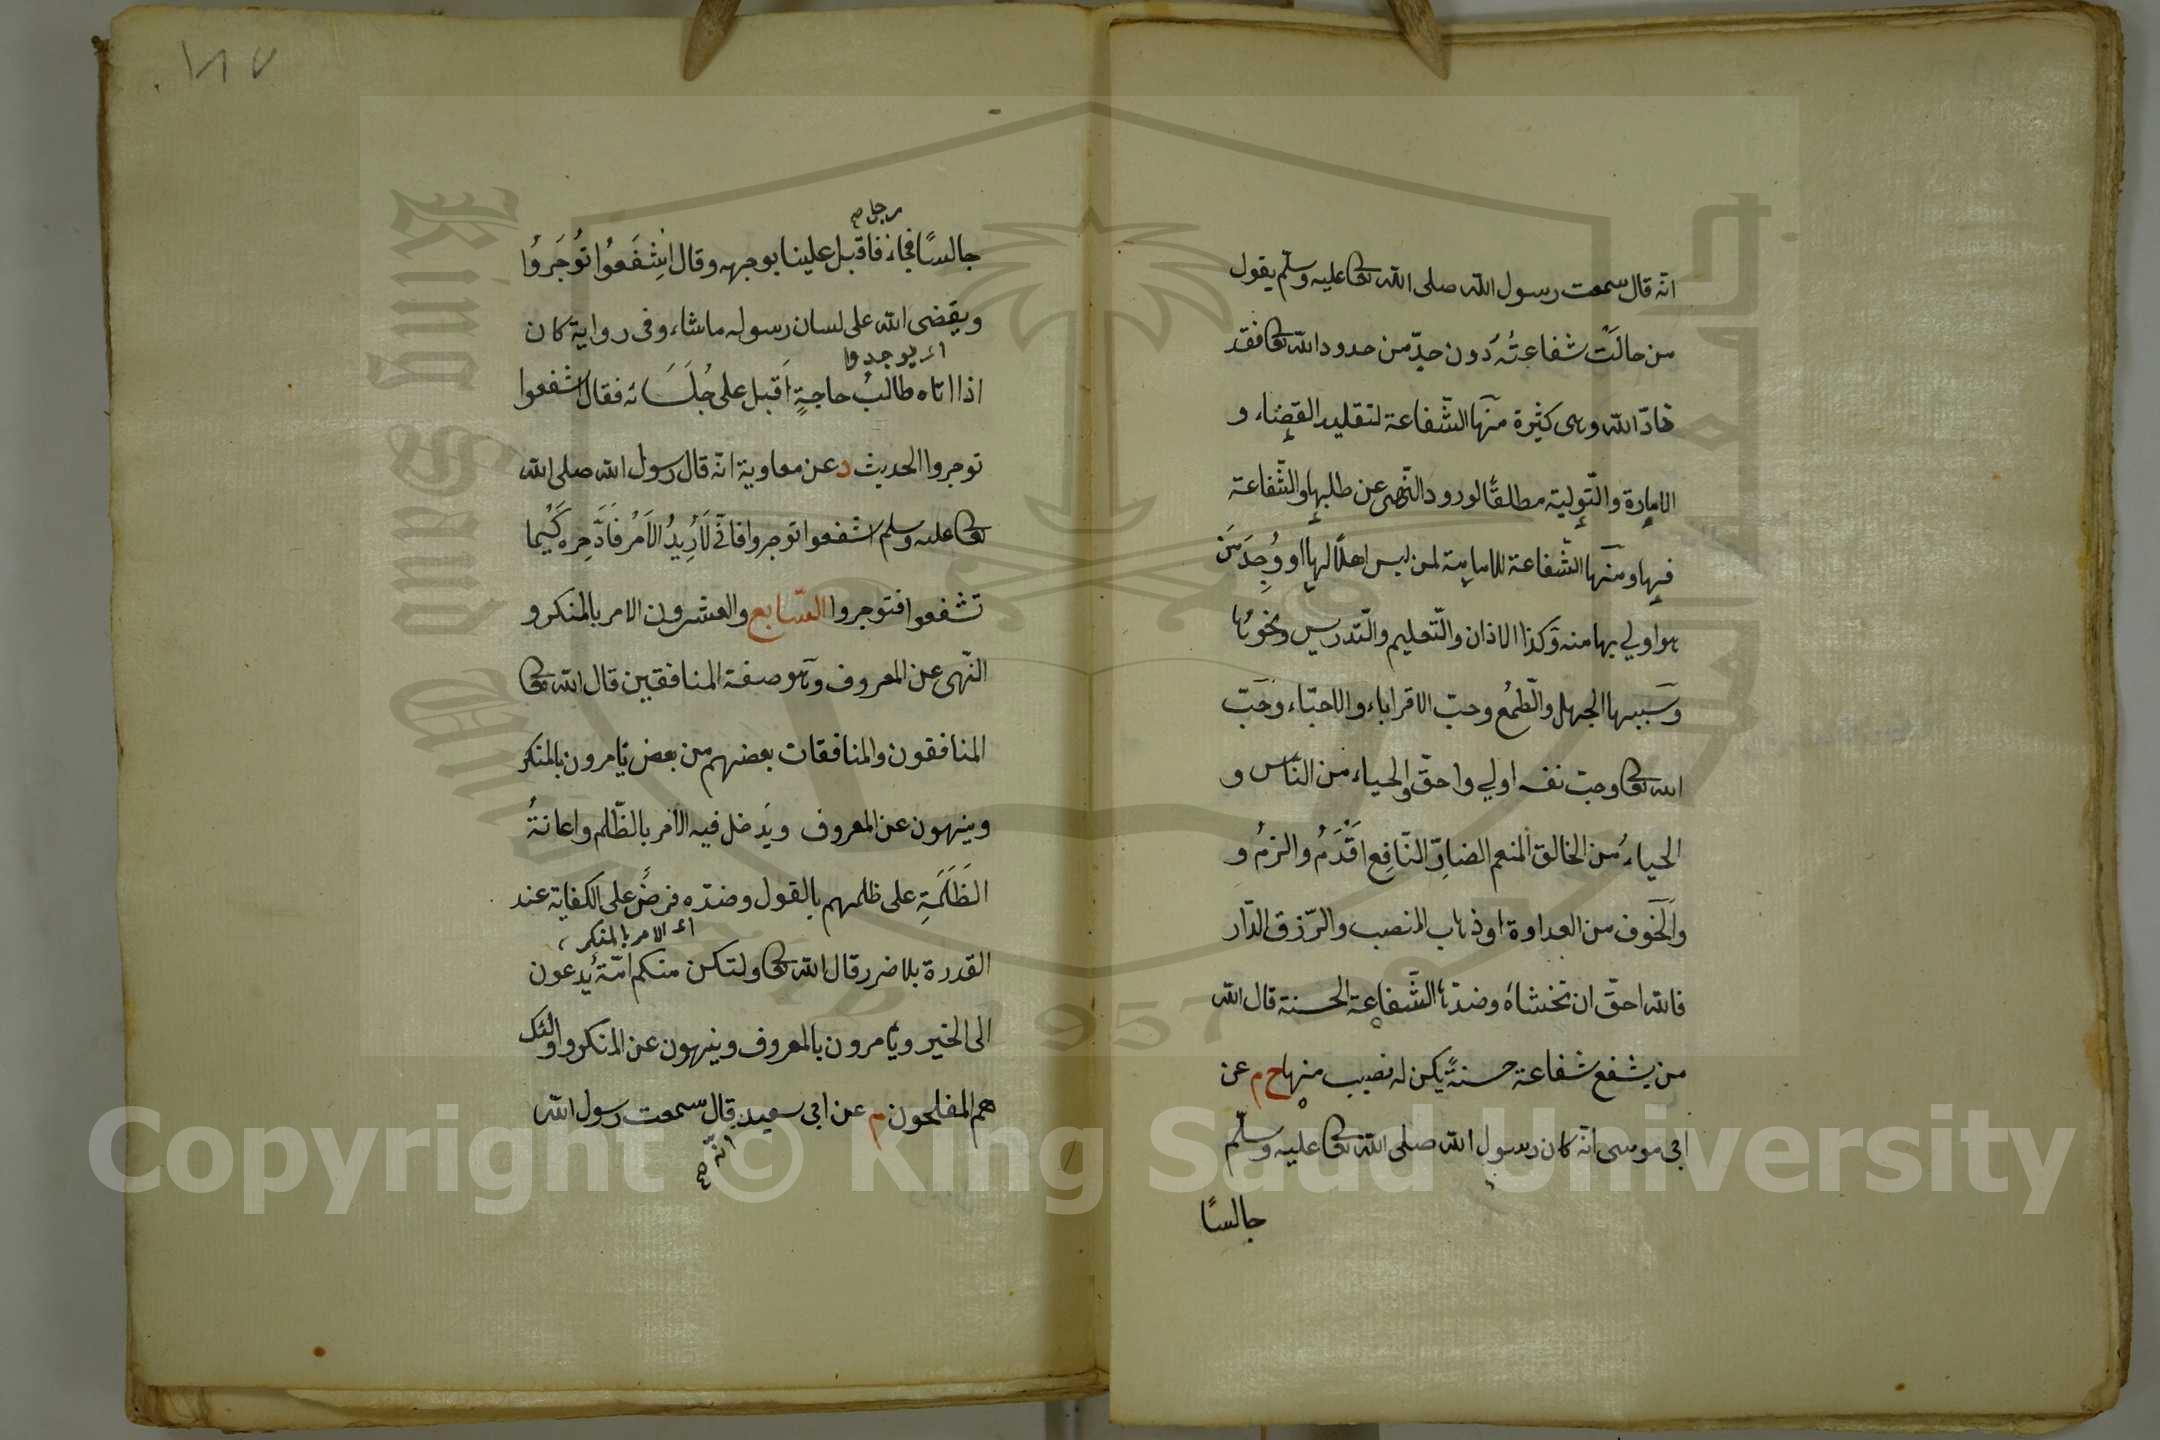 انه قال سمعت رسول الله صلى الله تعا عليه وسلم يقول
من حالَت شفاعتُهُ دون حدّ من حدود الله تعا فقد
ضادّ الله وهى كثيرة منها الشّفاعة لتقليد القضاء و
الامارة والتّولية مطلقًا لورود النّهى عن طلبها والشّفاعة
فيها ومنها الشّفاعة للامامة لمن ليس اهلًا لها او وُجِدَ مَن
هو اولي بها منه وكذا الاذان والتّعليم والتّدريس ونحوُها
وسببها الجهل والطّمعُ وحبّ الاقراباء والاحبّاء وحبّ
الله تعا وحبّ نفسه اولي واحقّ والحياء من الناس و
الحياءُ من الخالق المنعم الضارّ النّافِع اقْدَمُ والزمُ و
والخَوف من العداوة او ذهاب المنصب والرّزق الدّار
فالله احقّ ان تخشاه وضدّها الشّفاعة الحسنة قال الله
من يشفع شفاعة حسنةً يكن له نصيب منها خ م عن
ابى موسى انّه كان رسول الله صلى الله تعا عليه وسلم
جالسًا
١٨٧
رجل صح
جالسًا فجاء فاقبل علينا بوجهه وقال اِشفَعُوا تُوجَروُا
ويقضى الله على لسان رسوله ماشاء وفى رواية كان
اى يوجدوا
اذا اتاه طالبُ حاجةٍ اَقبل على جُلَسَائه فقال اشفعوا
توجروا الحديث د عن معاوية انّه قال رسول الله صلى الله
تعا عليه وسلم اشفعوا توجروا فانّى لَأُرِيدُ الاَمْرَ فَاَؤخِّره كَيْما
تشفعوا فتوجروا السّابع والعشرون الامر بالمنكر و
النّهى عن المعروف وهو صفة المنافقين قال الله تعا
المنافقون والمنافقات بعضهم من بعض يامرون بالمنكر
وينهون عن المعروف ويدخل فيه الأمر بالظّلم واعانةُ
الظَلَمَةِ على ظلمهم بالقول وضدّه فرضٌ على الكفاية عند
اى الامر بالمنكر
القدرة بلا ضرر قال الله تعا ولتكن منكم امّةٌ يدعون
الى الخير ويامرون بالمعروف وينهون عن المنكر واولئك
هم المفلحون م عن ابى سعيد قال سمعت رسول الله
انّه صح
Copyright © King Saud University
King Saud University
1957